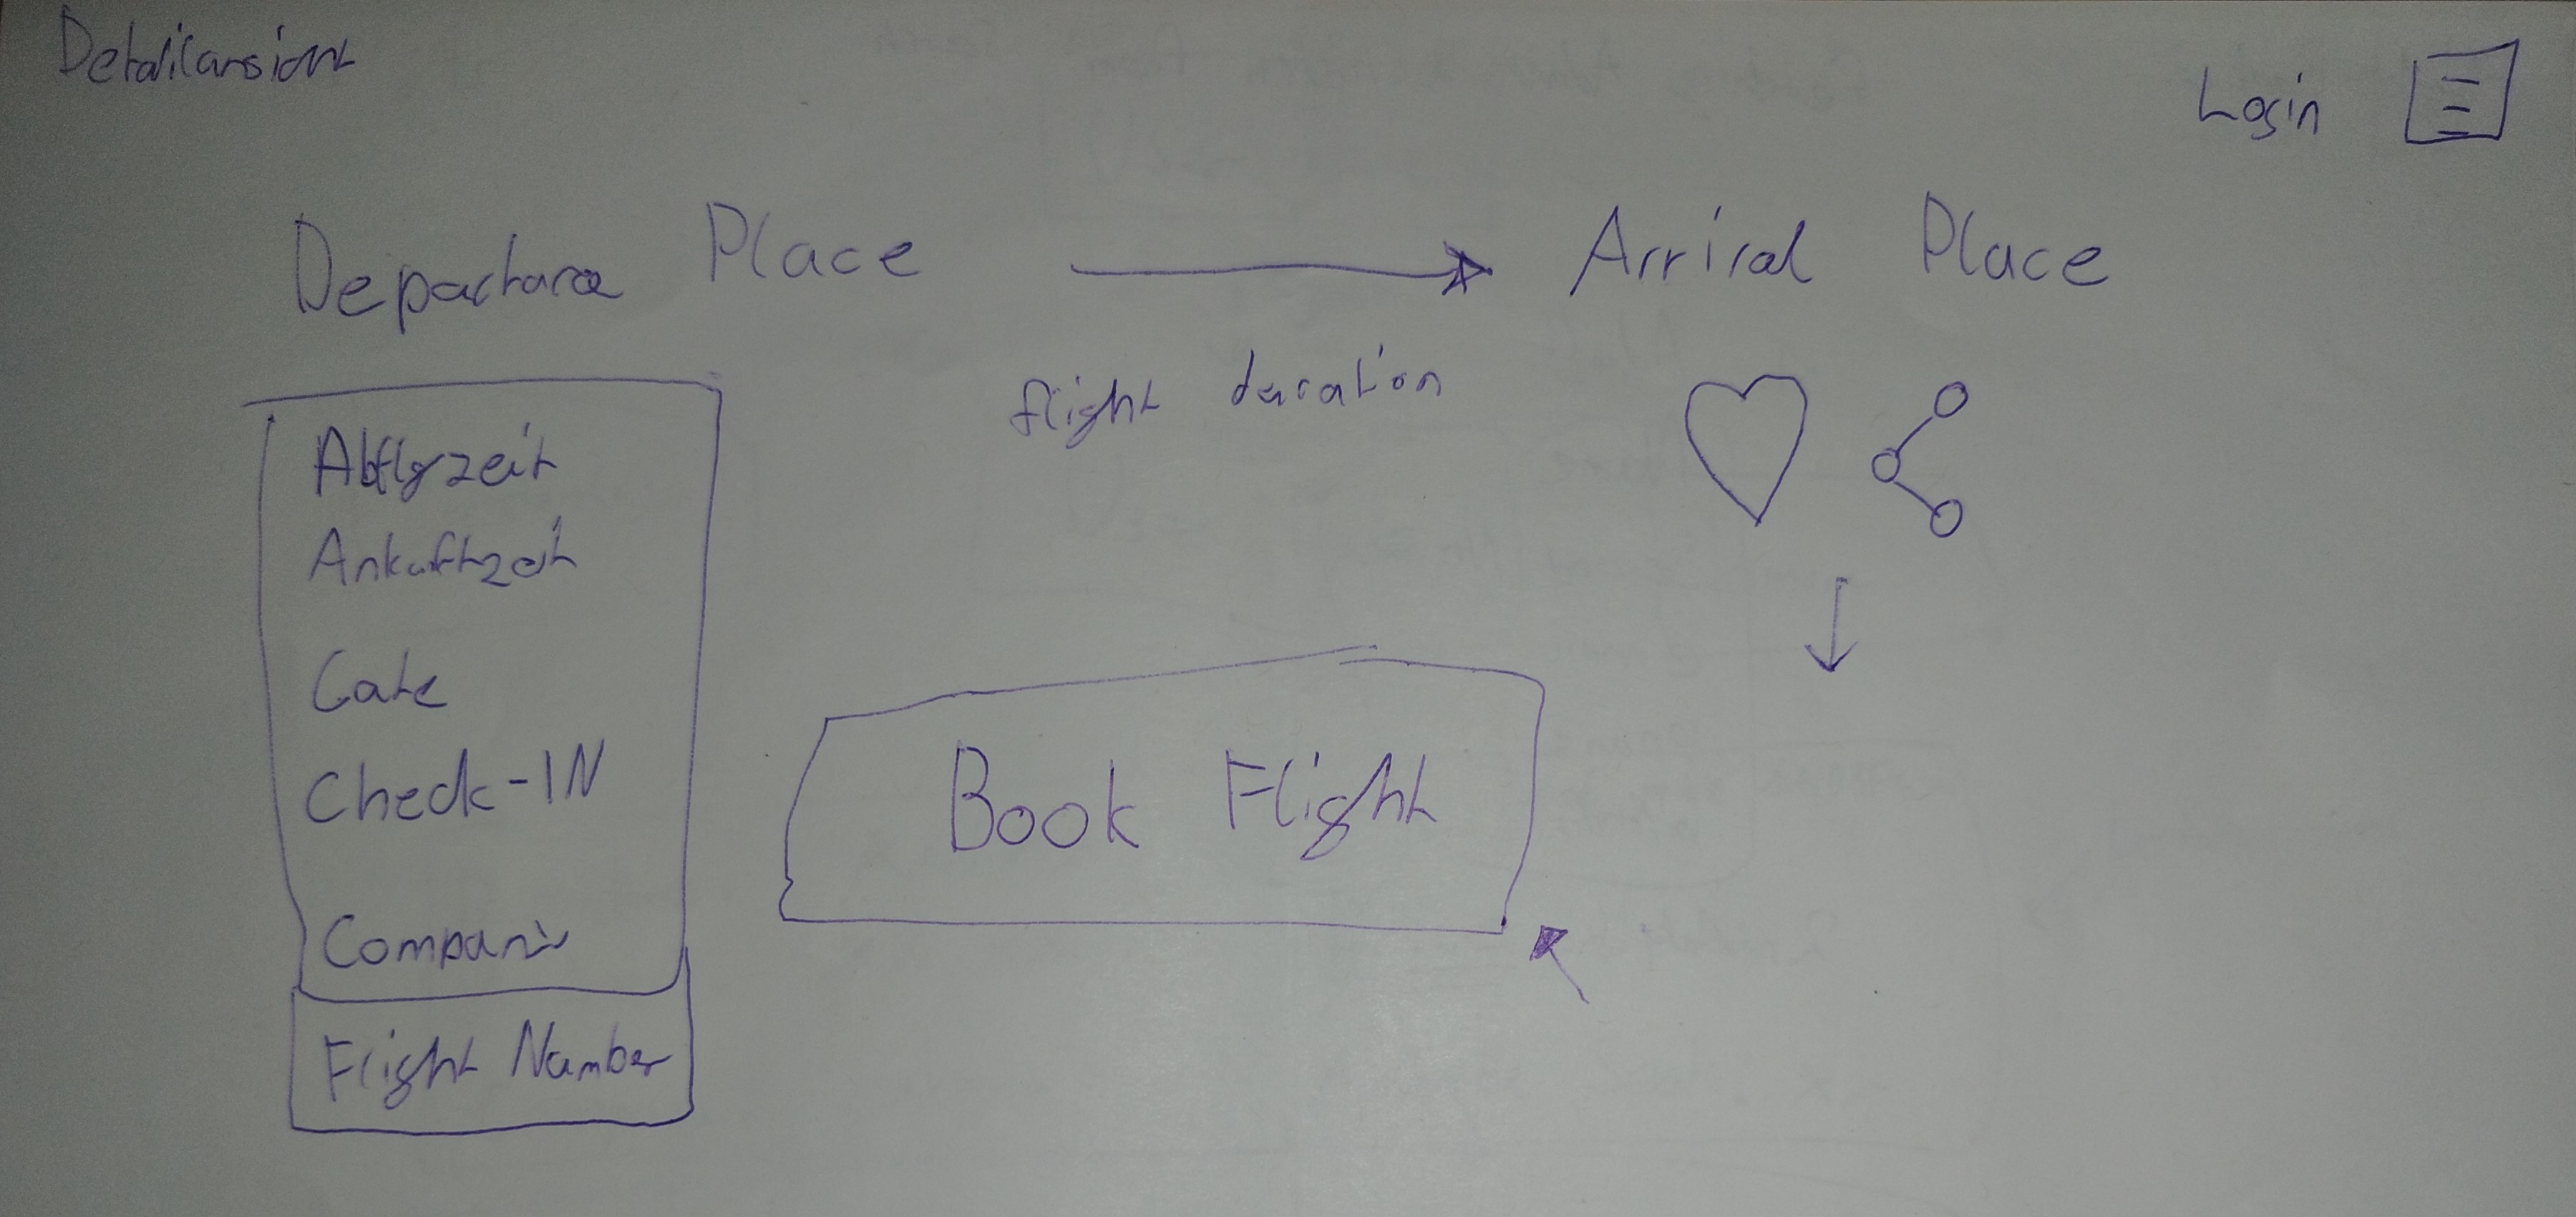 Detailansicht
Login
Departure Place
Arrival Place
flight duration
Abflgzeit
Ankuftzeit
Gate
Check-IN
Book Flight
Company
Flight Number